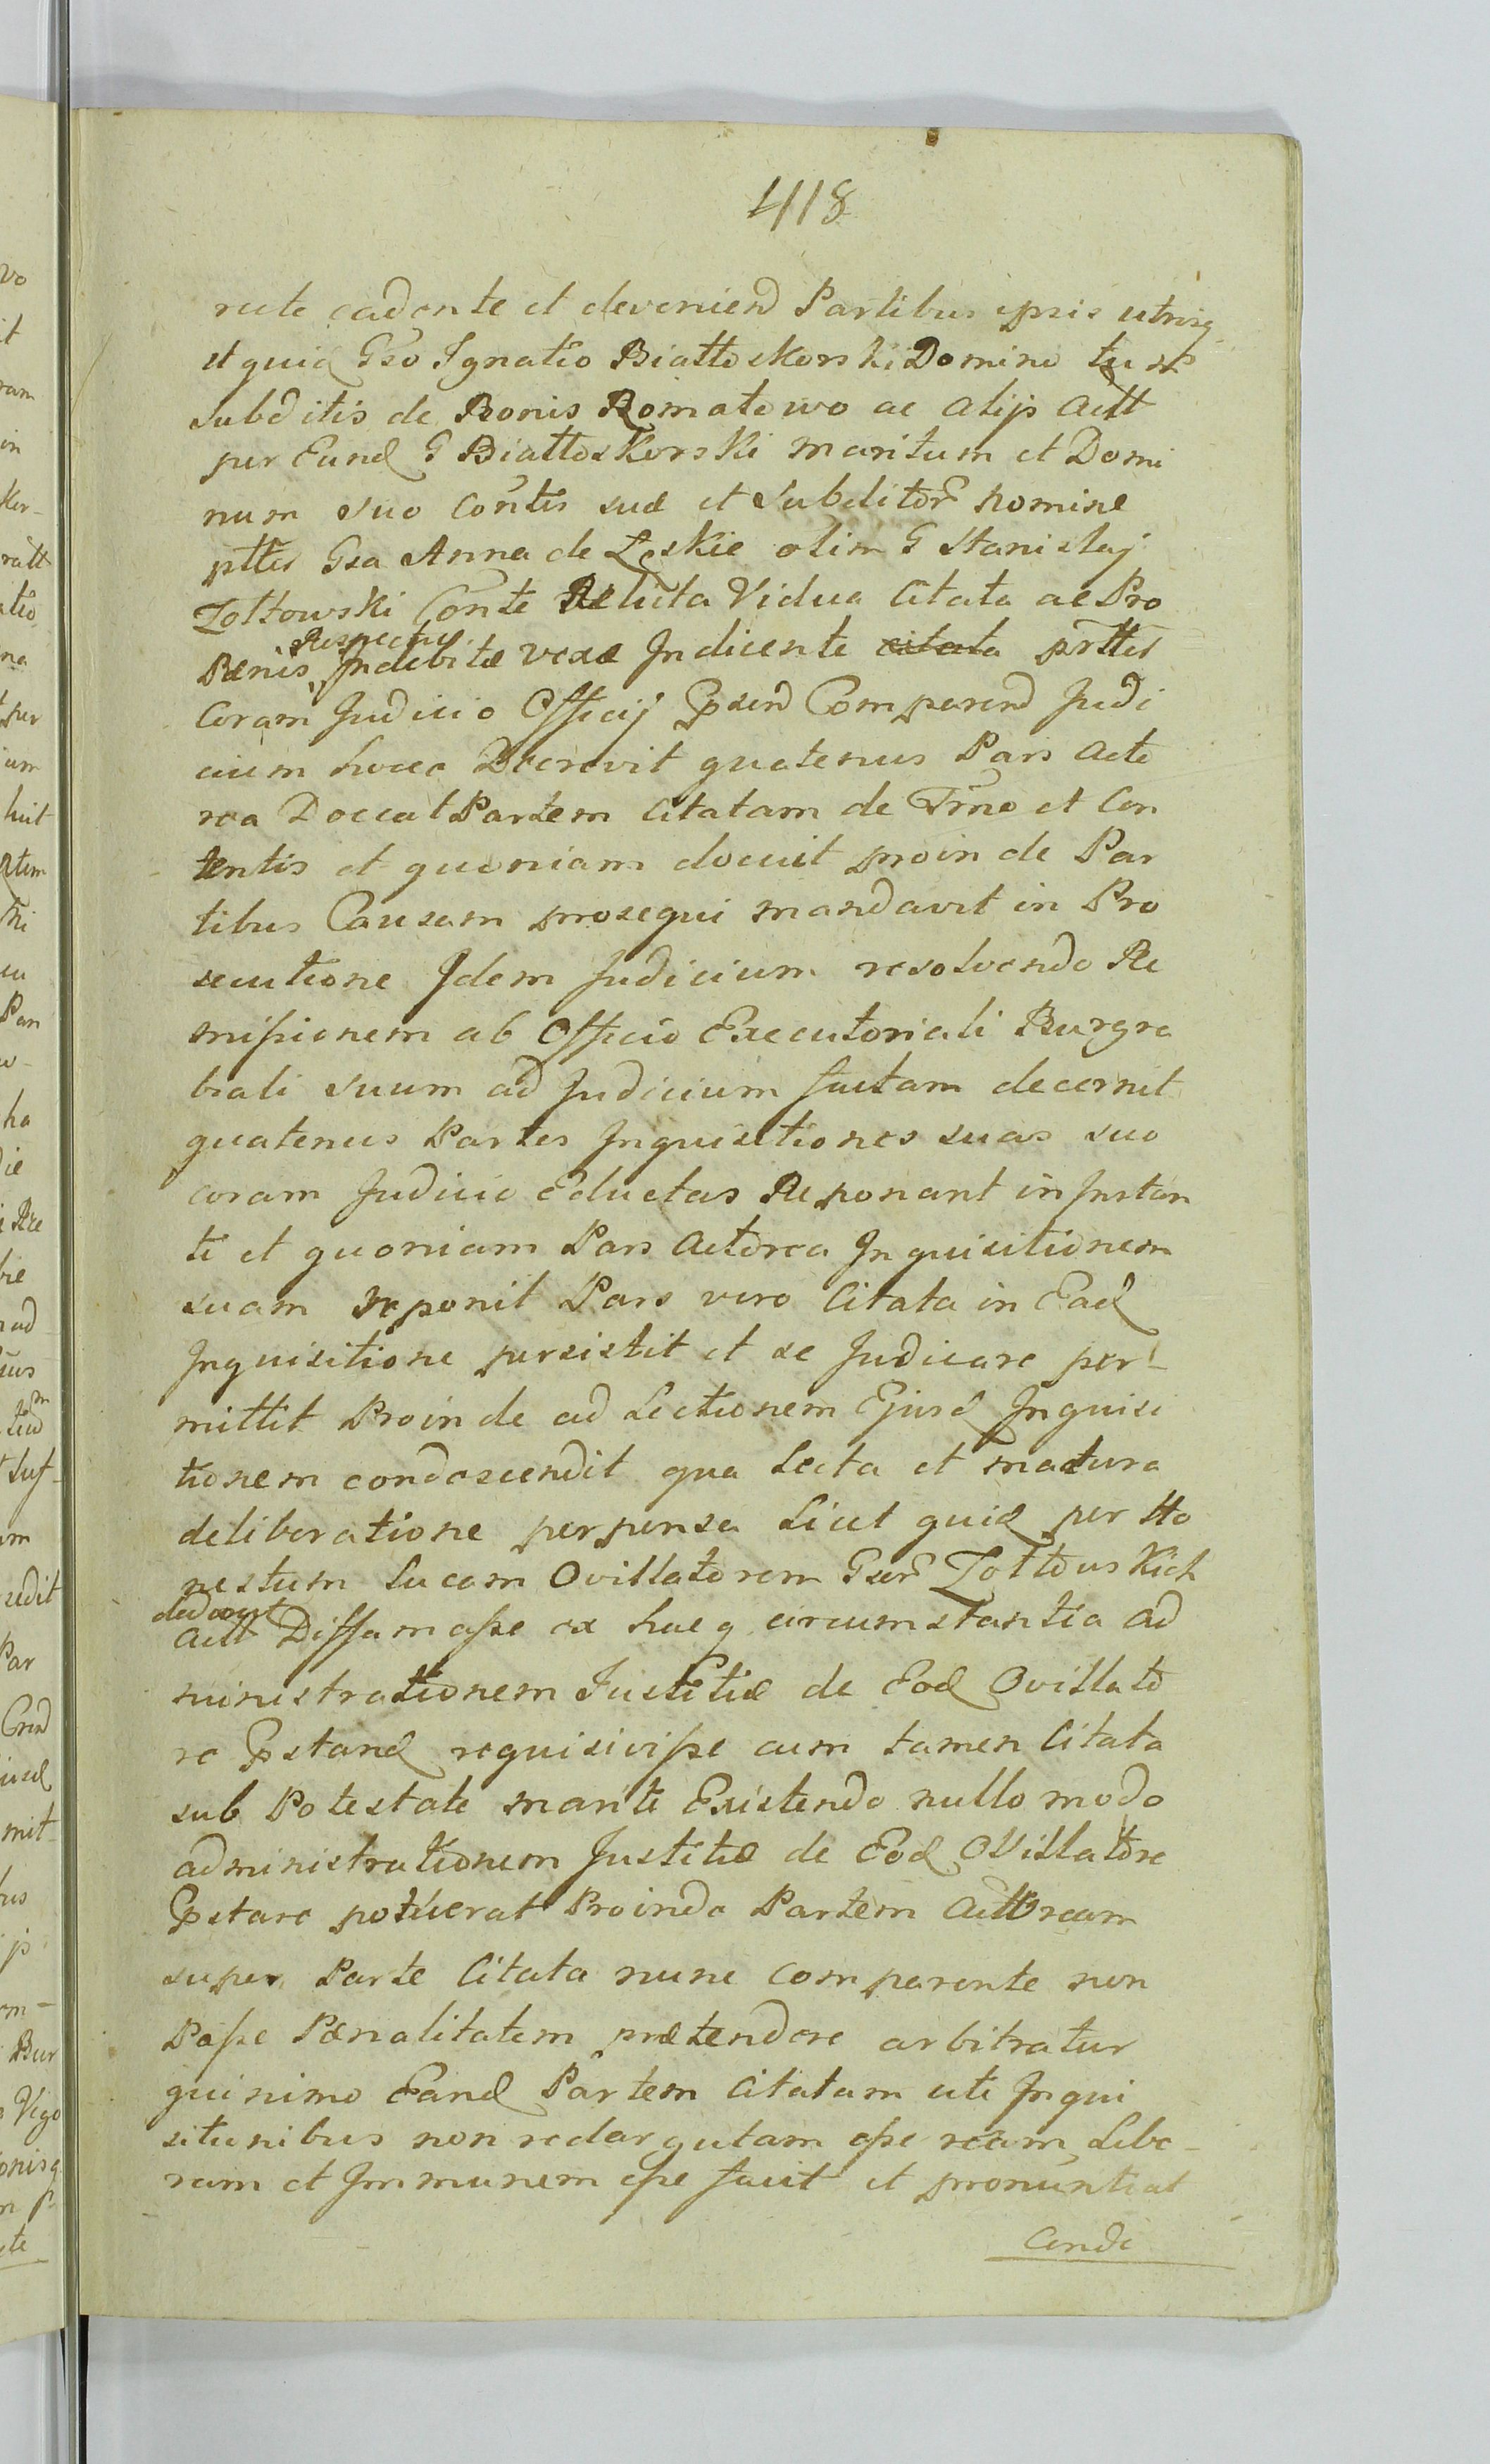 418
recte cadente et deveniend Partibus ipsis utrisq
et quid Gso Ignatio Białłoskorski Domino tum
subditis de Bonis Romatowo ac alijs Actt
per Eund G Białłoskorski maritum et Domi
num suo Contis suæ et Subditor nomine
pttes Gsa Anna de Leskie olim G Stanislaj
Zołtowski Conte Relicta Vidua Citata ac Pro
Respectu
Pænis Indebitæ vexæ Indicente citata prttes
Coram Judicio Officij Psend Comparend Judi
cium hocce Decrevit quatenus Pars Acto
rea Doceat Partem Citatam de Trno et Con
tentis et quoniam docuit proin de Par
tibus Causam prosequi mandavit in Pro
secutione Idem Judicium resolvendo Re
missionem ab Officio Executoriali Burgra
biali suum ad Judicium factam decernit
quatenus Partes Inquisitiones suas suo
coram Judicio Eductas Reponant in Instan
ti et quoniam Pars Actorea Inquisitionem
suam reponit Pars vero Citata in Ead
Inquisitione persistit et se Judicare per-
mittit Proinde ad Lectionem Ejusd Inquisi
tionem condescendit qua Lecta et matura
deliberatione perpensa Licet quid per Ho
nestum Lucam Ovillatorem Gser Zołtowskich
Actt Diffamasse ex hacq circumstantia ad
ministrationem Justitiæ de Eod Ovillato
re Pstand requisivisse cum tamen Citata
sub Potestate mariti Existendo nullo modo
administrationem Justitiæ de Eod OVillatore
Pstare potuerat Proinde Partem Acttoream
super Parte Citata nunc comparente non
Posse Pænalitatem prætendere arbitratur
quinimo Eand Partem Citatam uti Inqui
sitionibus non redargutam esse ream Libe-
ram et Immunem esse facit et pronuntiat
Conde